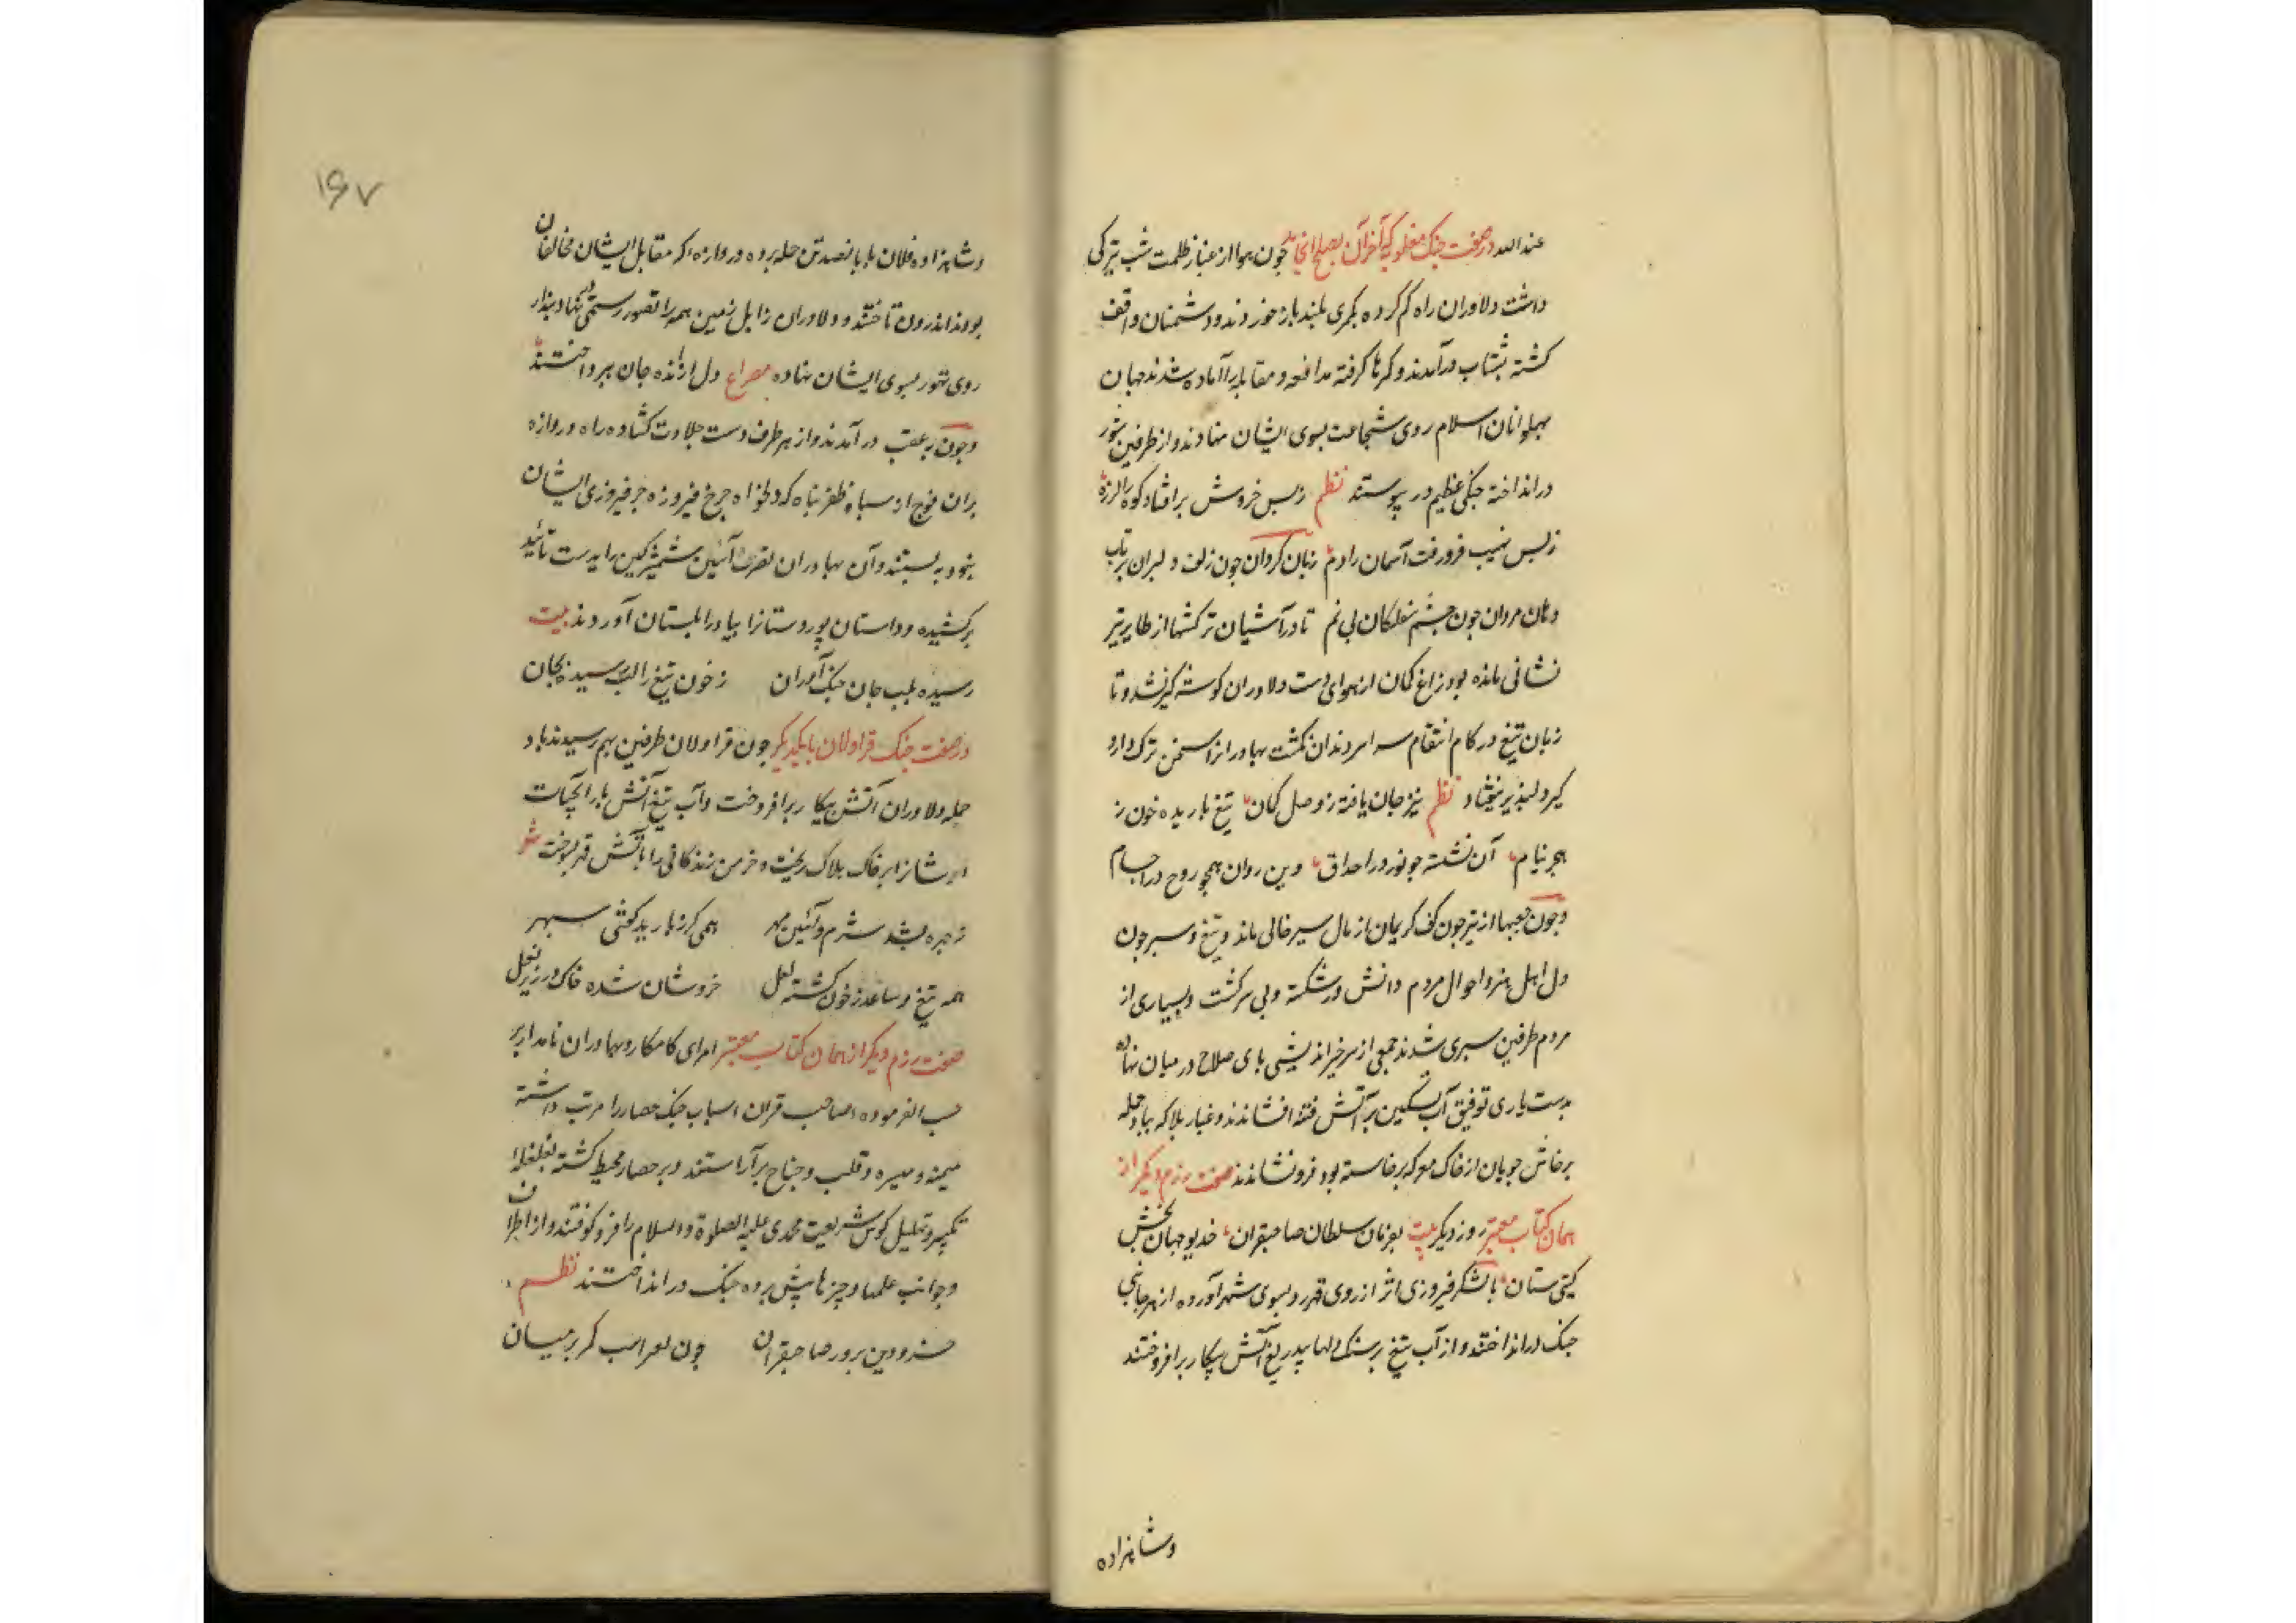 عند الله در صفت جنک مغلوبه که آخر آن بصلح انجامد چون هوا از غبار ظلمت شب تیرکی
داشت دلاوران راه کم کرده بکمری بلند باز خوردند و دشمنان واقف
کشته بشتاب درآمدند و کمرها کرفته مدافعه و مقابله را آماده شدند جهان
پهلوانان اسلام روی شجاعت بسوی ایشان نهادند و از طرفین شور
در انداخته جنکی عظیم در پیوستند نظم ز بس خروش بر افتاد کوه را لرزه
ز بس نهیب فرو رفت آسمان را دم زبان کردان چون زلف دلبران پر تاب
دهان مردان چون چشم مفلکان بی نم تا در آشیان ترکشها از طایر تیر
نشانی مانده بود زاغ کمان از هوای دست دلاوران کوشه کیر نشد و تا
زبان تیغ در کام انتقام سراسر دندان نکشت بهادرانرا سخن ترک دارو
کیر دلپذیر نیفتاد نظم تیز جان یافته ز وصل کمان تیغ باریده خون ز
هجر نیام آن نشسته چو نور در احداق وین روان همچو روح در اجسام
و چون جعبها از تیر چون کف کریمان از مال سیر خالی ماند و تیغ و سپر چون
دل اهل هنر و احوال مردم دانش ور شکسته و بی سر کشت و بسیاری از
مردم طرفین سپری شدند جمعی از سر خیر اندیشی پای صلاح در میان نهاده
بدست یاری توفیق آب تسکین بر آتش فتنه افشاندند و غبار بلا که بباد حمله
پرخاش جویان از خاک معرکه برخاسته بود فرو نشاندند صفت رزم دیکر از
همان کتاب معتبر روز دیکر بیت بفرمان سلطان صاحبقران خدیو جهان بخش
کیتی ستان با لشکر فیروزی اثر از روی قهر رو بسوی شهر آورده از هر جانبی
جنک در انداختند و از آب تیغ بر سنک دلها بیدریغ آتش پیکار بر افروختند
و شاهزاده
۱۶۷
و شاهزاده فلان با پانصد تن حمله برده دروازه که مقابل ایشان مخالفان
بودند اندرون تاختند و دلاوران زابل زمین همه را تصور رستمی در نهاد پندار
روی تهور بسوی ایشان نهاده مصراع دل از انده جان بپرداختند
و چون به عقب در آمدند و از هر طرف دست جلادت کشاده راه دروازه
بران فوج از سپاه ظفر پناه که دلخواه چرخ فیروزه جز فیروزی ایشان
نبود به بستند و آن بهادران نصرت آئین شمشیر کین را بدست تائید
برکشیده و داستان پور دستانرا بیاد زابلستان آوردند بیت
رسیده بلب جان جنک آوران ز خون تیغ را لب رسیده بجان
در صفت جنک قراولان با یکدیکر چون قراولان طرفین بهم رسیدند باد
حمله دلاوران آتش پیکار برافروخت و آب تیغ آتش بار آبحیات
ایشانرا بر خاک هلاک ریخت و خرمن زندکانی را بآتش قهر بسوخت شعر
ز چهره بشد شرم و آئین مهر همی کرز بارید کفتی سپهر
همه تیغ و ساعد ز خون کشته لعل خروشان شده خاک در زیر نعل
صفت رزم دیکر از همان کتاب معتبر امرای کامکار و بهادران نامدار بر
حسب الفرموده صاحب قران اسباب جنک حصار را مرتب داشته
میمنه و میسره و قلب و جناح برآراستند و بر حصار محیط کشته بغلغله
تکبیر و تهلیل کوس شریعت محمدی علیه الصلوة والسلام را فرو کوفتند و از اطراف
و جوانب علمها و چیزها پیش برده جنک در انداختند نظم
خسرو دین پرور صاحبقران چون کمر بر میان